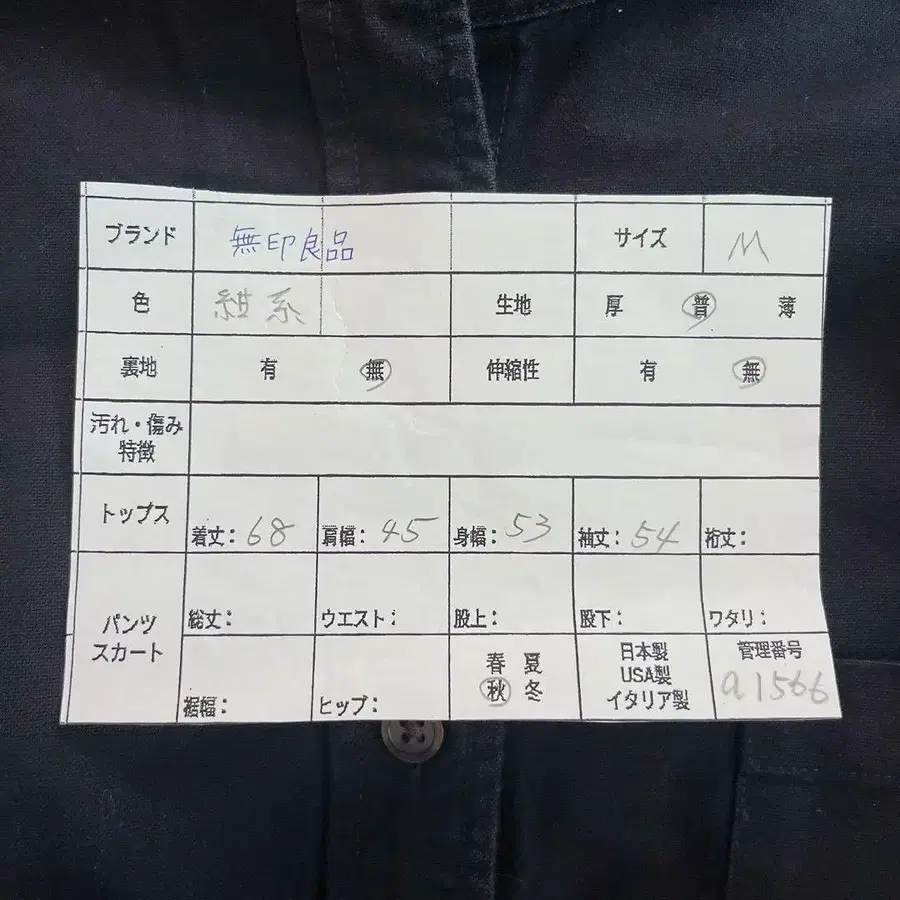 ブランド 無印良品 サイズ M
色 紺系 生地 厚 普 薄
裏地 有 無 伸縮性 有 無
汚れ・傷み
特徴
トップス 着丈: 68 肩幅: 45 身幅: 53 袖丈: 54 裄丈:
パンツ
スカート
総丈: ウエスト: 股上: 股下: ワタリ:
裾幅: ヒップ:
春 夏
秋 冬
日本製
USA製
イタリア製
管理番号
a1566